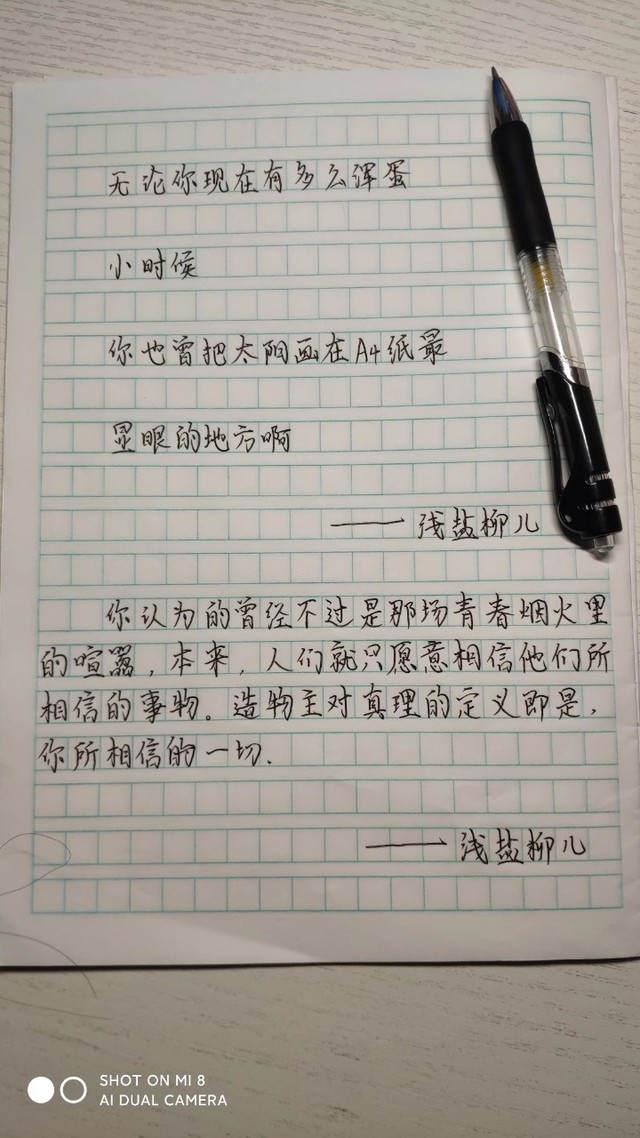 无论你现在有多么浑蛋
小时候
你也曾把太阳画在A4纸最
显眼的地方啊
——浅盐柳儿
你认为的曾经不过是那场青春烟火里
的喧嚣，本来，人们就只愿意相信他们所
相信的事物。造物主对真理的定义即是，
你所相信的一切.
——浅盐柳儿
SHOT ON MI 8
AI DUAL CAMERA